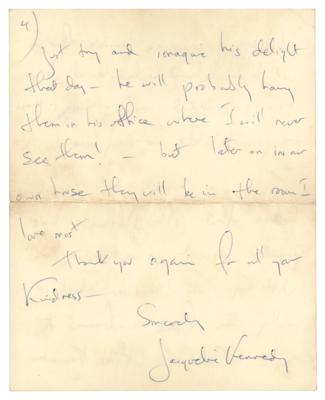 4)
Just try and imagine his delight
that day – he will probably hang
them in his office where I will never
see them! – but later on in our
own house they will be in the room I
love most
Thank you again for all your
Kindness –
Sincerely
Jacqueline Kennedy